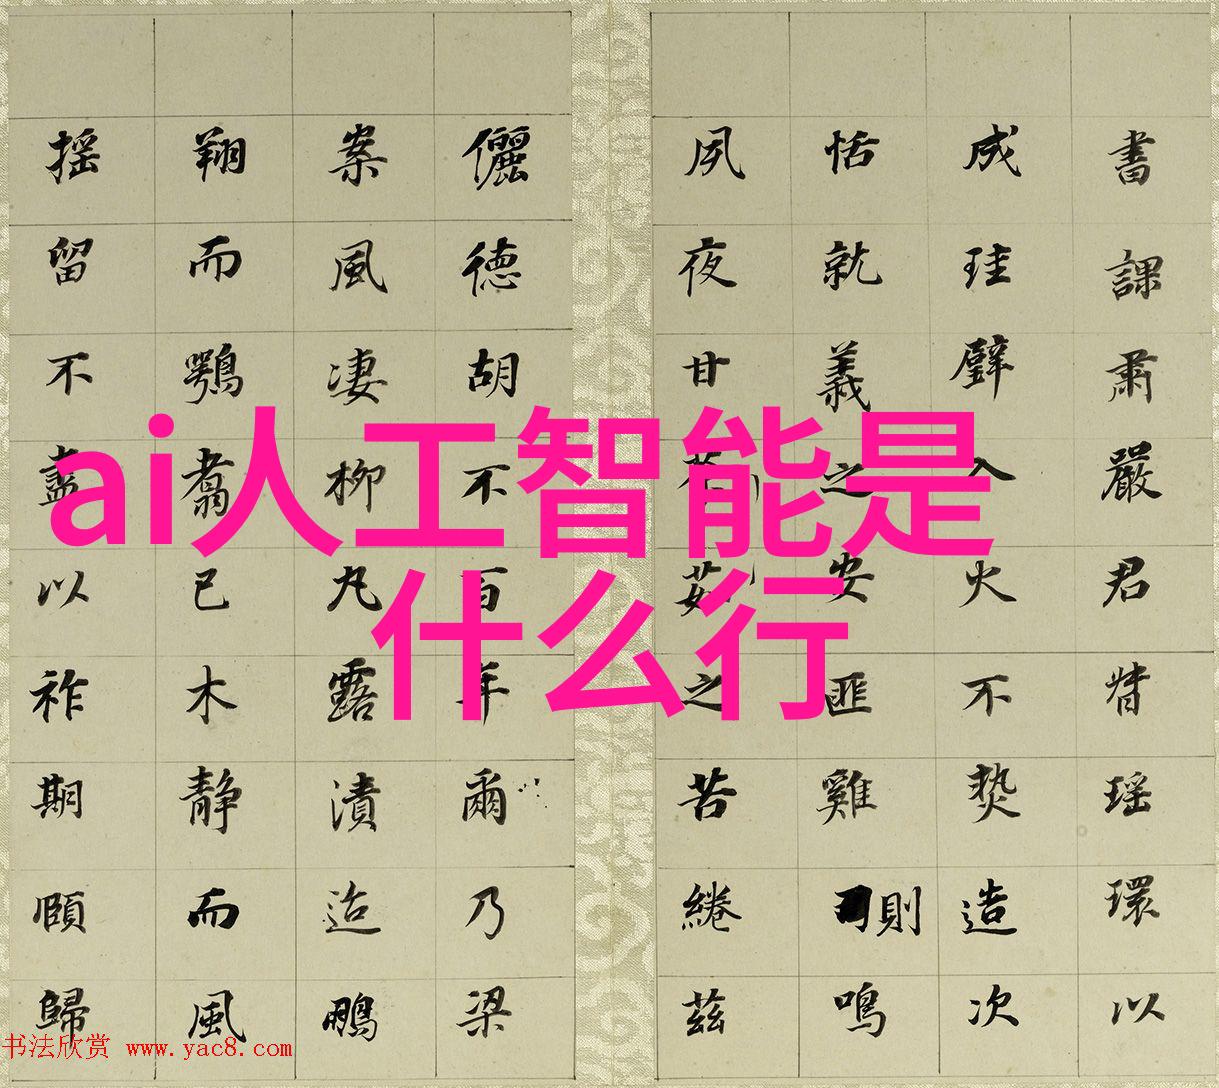 書課肅嚴君督瑶環以
成珪璧入火不熱造次
恬就義之安匪雞則鳴
夙夜甘荼茹之苦綣茲
儷德胡不百年爾乃梁
案風凄柳丸露漬迨鵬
翔而鶚翥已木靜而風
搖留不盡以祚期頤歸
ai人工智能是
什么行
书法欣赏 www.yac8.com